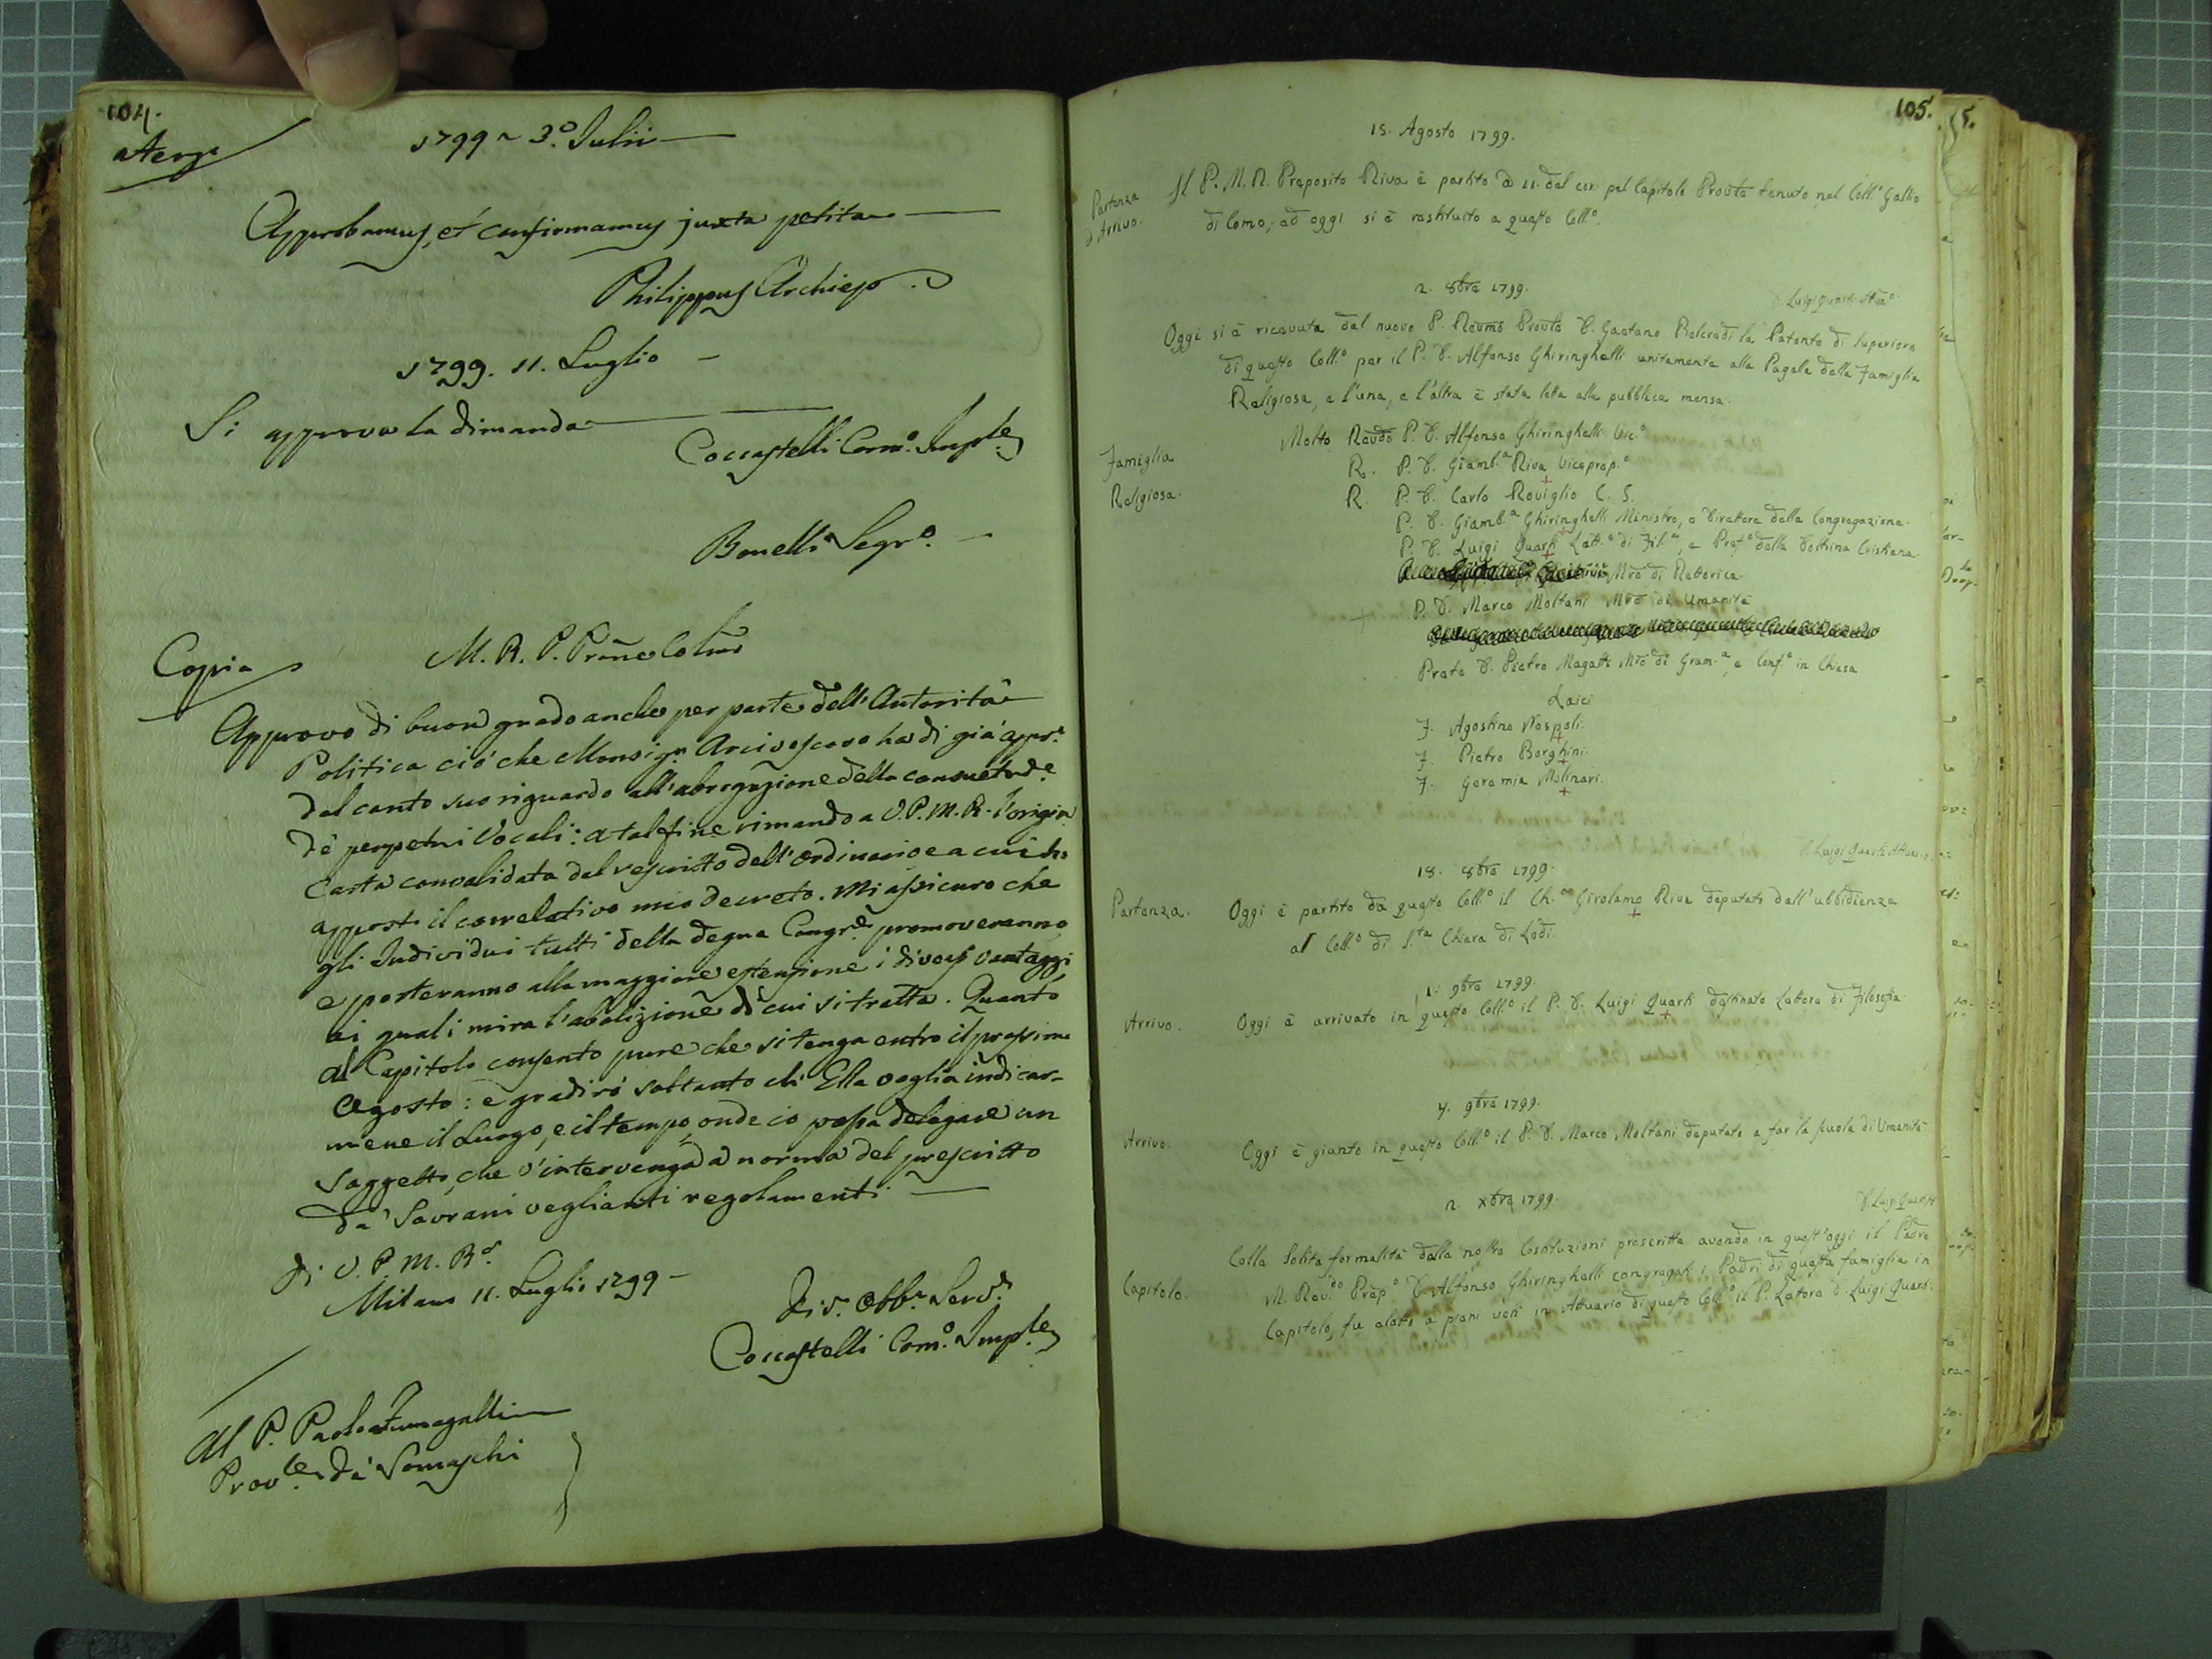 104.
a Tergo
1799 ~ 3.º Julii
Approbamus, et confirmamus juxta petita
Philippus Archiepo.
1799. 11. Luglio
Si approva la dimanda
Cocastelli Com.º Imple.
Bonelli Segr.º
Copia
M. R. P. Prône Colmo
Approvo di buon grado anche per parte dell'Autorità
Politica ciò che Monsig.r Arcivescovo ha di già appr.º
dal canto suo riguardo all'abrogazione della consuetud.e
de' perpetui Vocali: a tal fine rimando a V. P. M. R. l'origin.
Carta convalidata dal rescritto dell'ordinario e a cui ho
apposto il correlativo mio decreto. Mi assicuro che
gli Individui tutti della degna Congr.e promoveranno
e porteranno alla maggiore estensione i diversi vantaggi
ai quali mira l'abolizione di cui si tratta. Quanto
al Capitolo consento pure che si tenga entro il prossimo
Agosto: e gradirò soltanto ch'Ella voglia indicar-
mene il Luogo, e il tempo, onde io possa delegare un
Soggetto, che v'intervenga a norma del prescritto
da' Sovrani veglianti regolamenti.
Di V. P. M. R.
Milano 11. Luglio 1799
Div. Obb. Serv.
Cocastelli Com.º Imple.
Al P. Paolo Fumagalli
Prov.le de' Somaschi
105.
15. Agosto 1799.
Partenza
e Arrivo.
Il P. M. R. Preposito Riva è partito a 11. del cor. pel Capitolo Provle tenuto nel Coll.º Gallio
di Como, ed oggi si è restituito a questo Coll.º
2. 8bre 1799.
D. Luigi Quarti Att.º
Oggi si è ricevuta dal nuovo P. Revmo Provle D. Gaetano Belcredi la Patente di Superiore
di questo Coll.º per il P. D. Alfonso Ghiringhelli unitamente alla Pagela della Famiglia
Religiosa, e l'una, e l'altra è stata letta alla pubblica mensa.
Famiglia
Religiosa.
Molto Revdo P. D. Alfonso Ghiringhelli Vic.º
R. P. D. Giamb.a Riva Viceprep.º
R. P. D. Carlo Roviglio C. S.
P. D. Giamb.a Ghiringhelli Ministro, e Direttore della Congregazione.
P. D. Luigi Quarti Lett.e di Fil.a, e Pref.º della Dottrina Cristiana
Mro di Rettorica.
P. D. Marco Moltani Mro di Umanità
Prete D. Pietro Magatti Mro di Gram.a, e Conf.e in Chiesa
Laici
F. Agostino Nespoli.
F. Pietro Borghini.
F. Geremia Molinari.
D. Luigi Quarti Attuario
18. 8bre 1799.
Partenza.
Oggi è partito da questo Coll.º il Ch.co Girolamo Riva deputato dall'ubbidienza
al Coll.º di S.ta Chiara di Lodi.
1. 9bre 1799.
Arrivo.
Oggi è arrivato in questo Coll.º il P. D. Luigi Quarti destinato Lettore di Filosofia.
4. 9bre 1799.
Arrivo.
Oggi è giunto in questo Coll.º il P. D. Marco Moltani deputato a far la scuola di Umanità
2 xbre 1799.
D. Luigi Quarti
Capitolo.
Colla Solita formalità dalle nostre Costituzioni prescritta avendo in quest'oggi il Padre
M. Rev.do Prep.º D. Alfonso Ghiringhelli congregati i Padri di questa famiglia in
Capitolo, fu eletto a pieni voti in Attuario di questo Coll.º il P. Lettore D. Luigi Quarti.